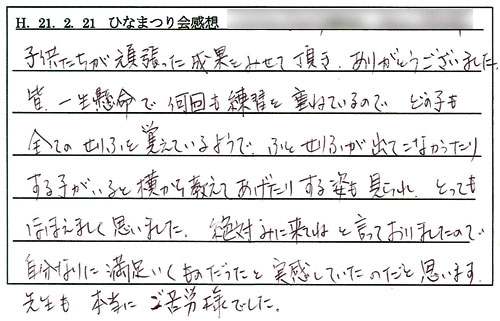 H. 21. 2. 21 ひなまつり会感想
子供たちが頑張った成果をみせて頂き、ありがとうございました。
皆、一生懸命で何回も練習を重ねているので どの子も
全ての せりふを覚えているようで、ふと せりふが出てこなかったり
する子がいると横から教えてあげたりする姿も見られ、とっても
ほほえましく思いました。 絶対みに来てねと言っておりましたので
自分なりに満足いくものだったと実感していたのだと思います。
先生も 本当に ご苦労様でした。